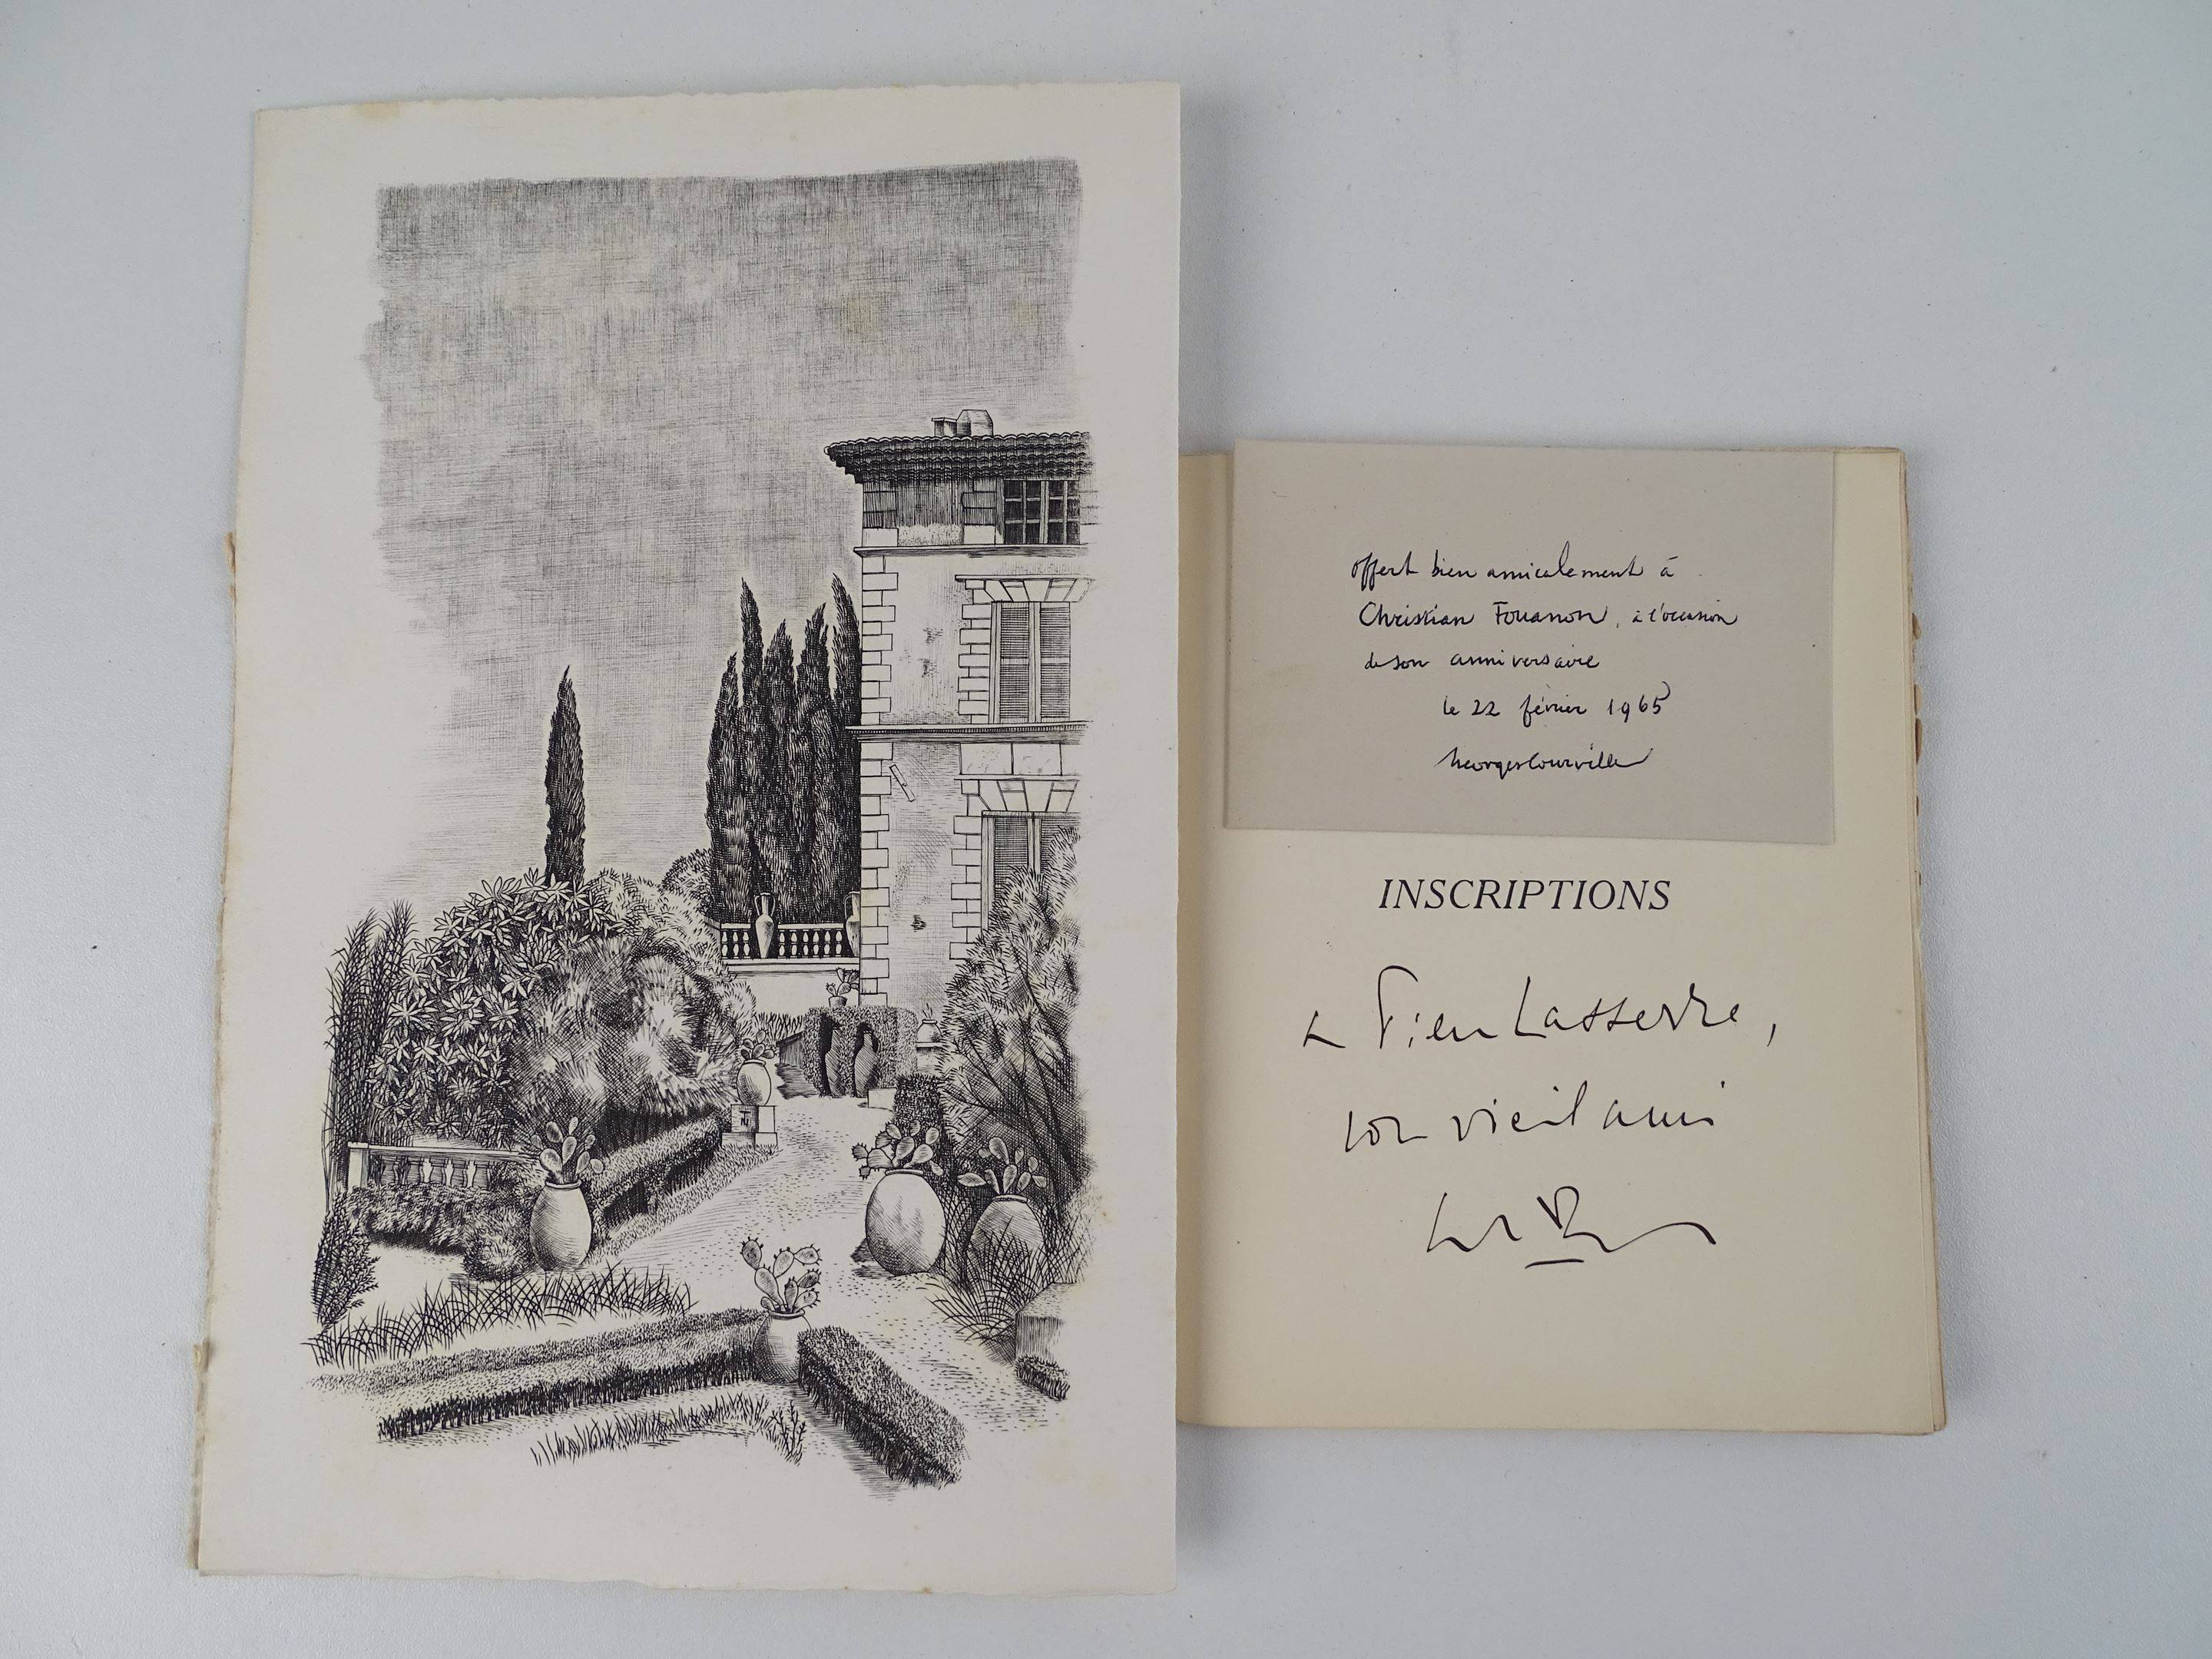 offert bien amicalement à
Christian Fouanon, à l'occasion
de son anniversaire
le 22 février 1965
Georges Courville
INSCRIPTIONS
à Pierre Lasserre,
son vieil ami